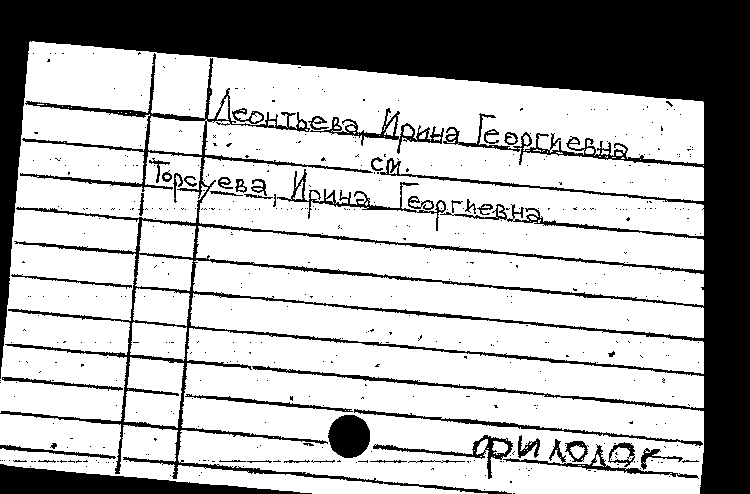 Леонтьева, Ирина Георгиевна.
см.
Торсуева, Ирина Георгиевна
филолог